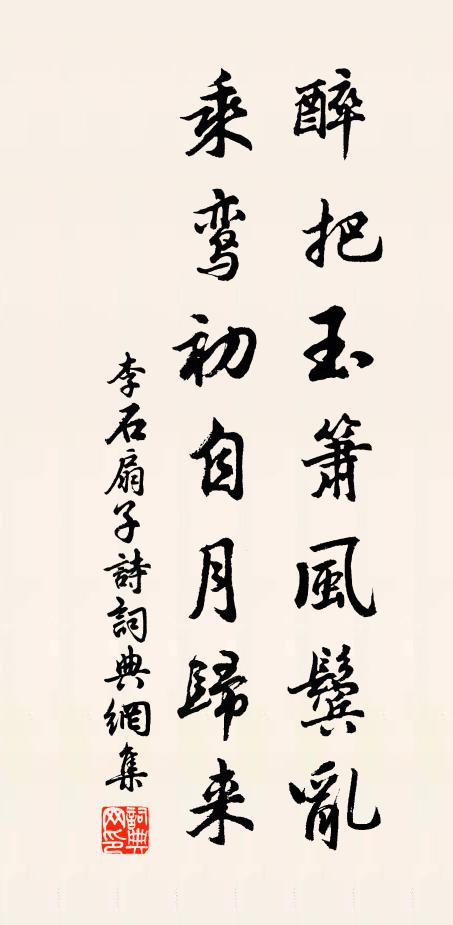 醉把玉箫風鬓亂
乘鸾初自月歸来
李石扇子詩詞典網集
詞典網印